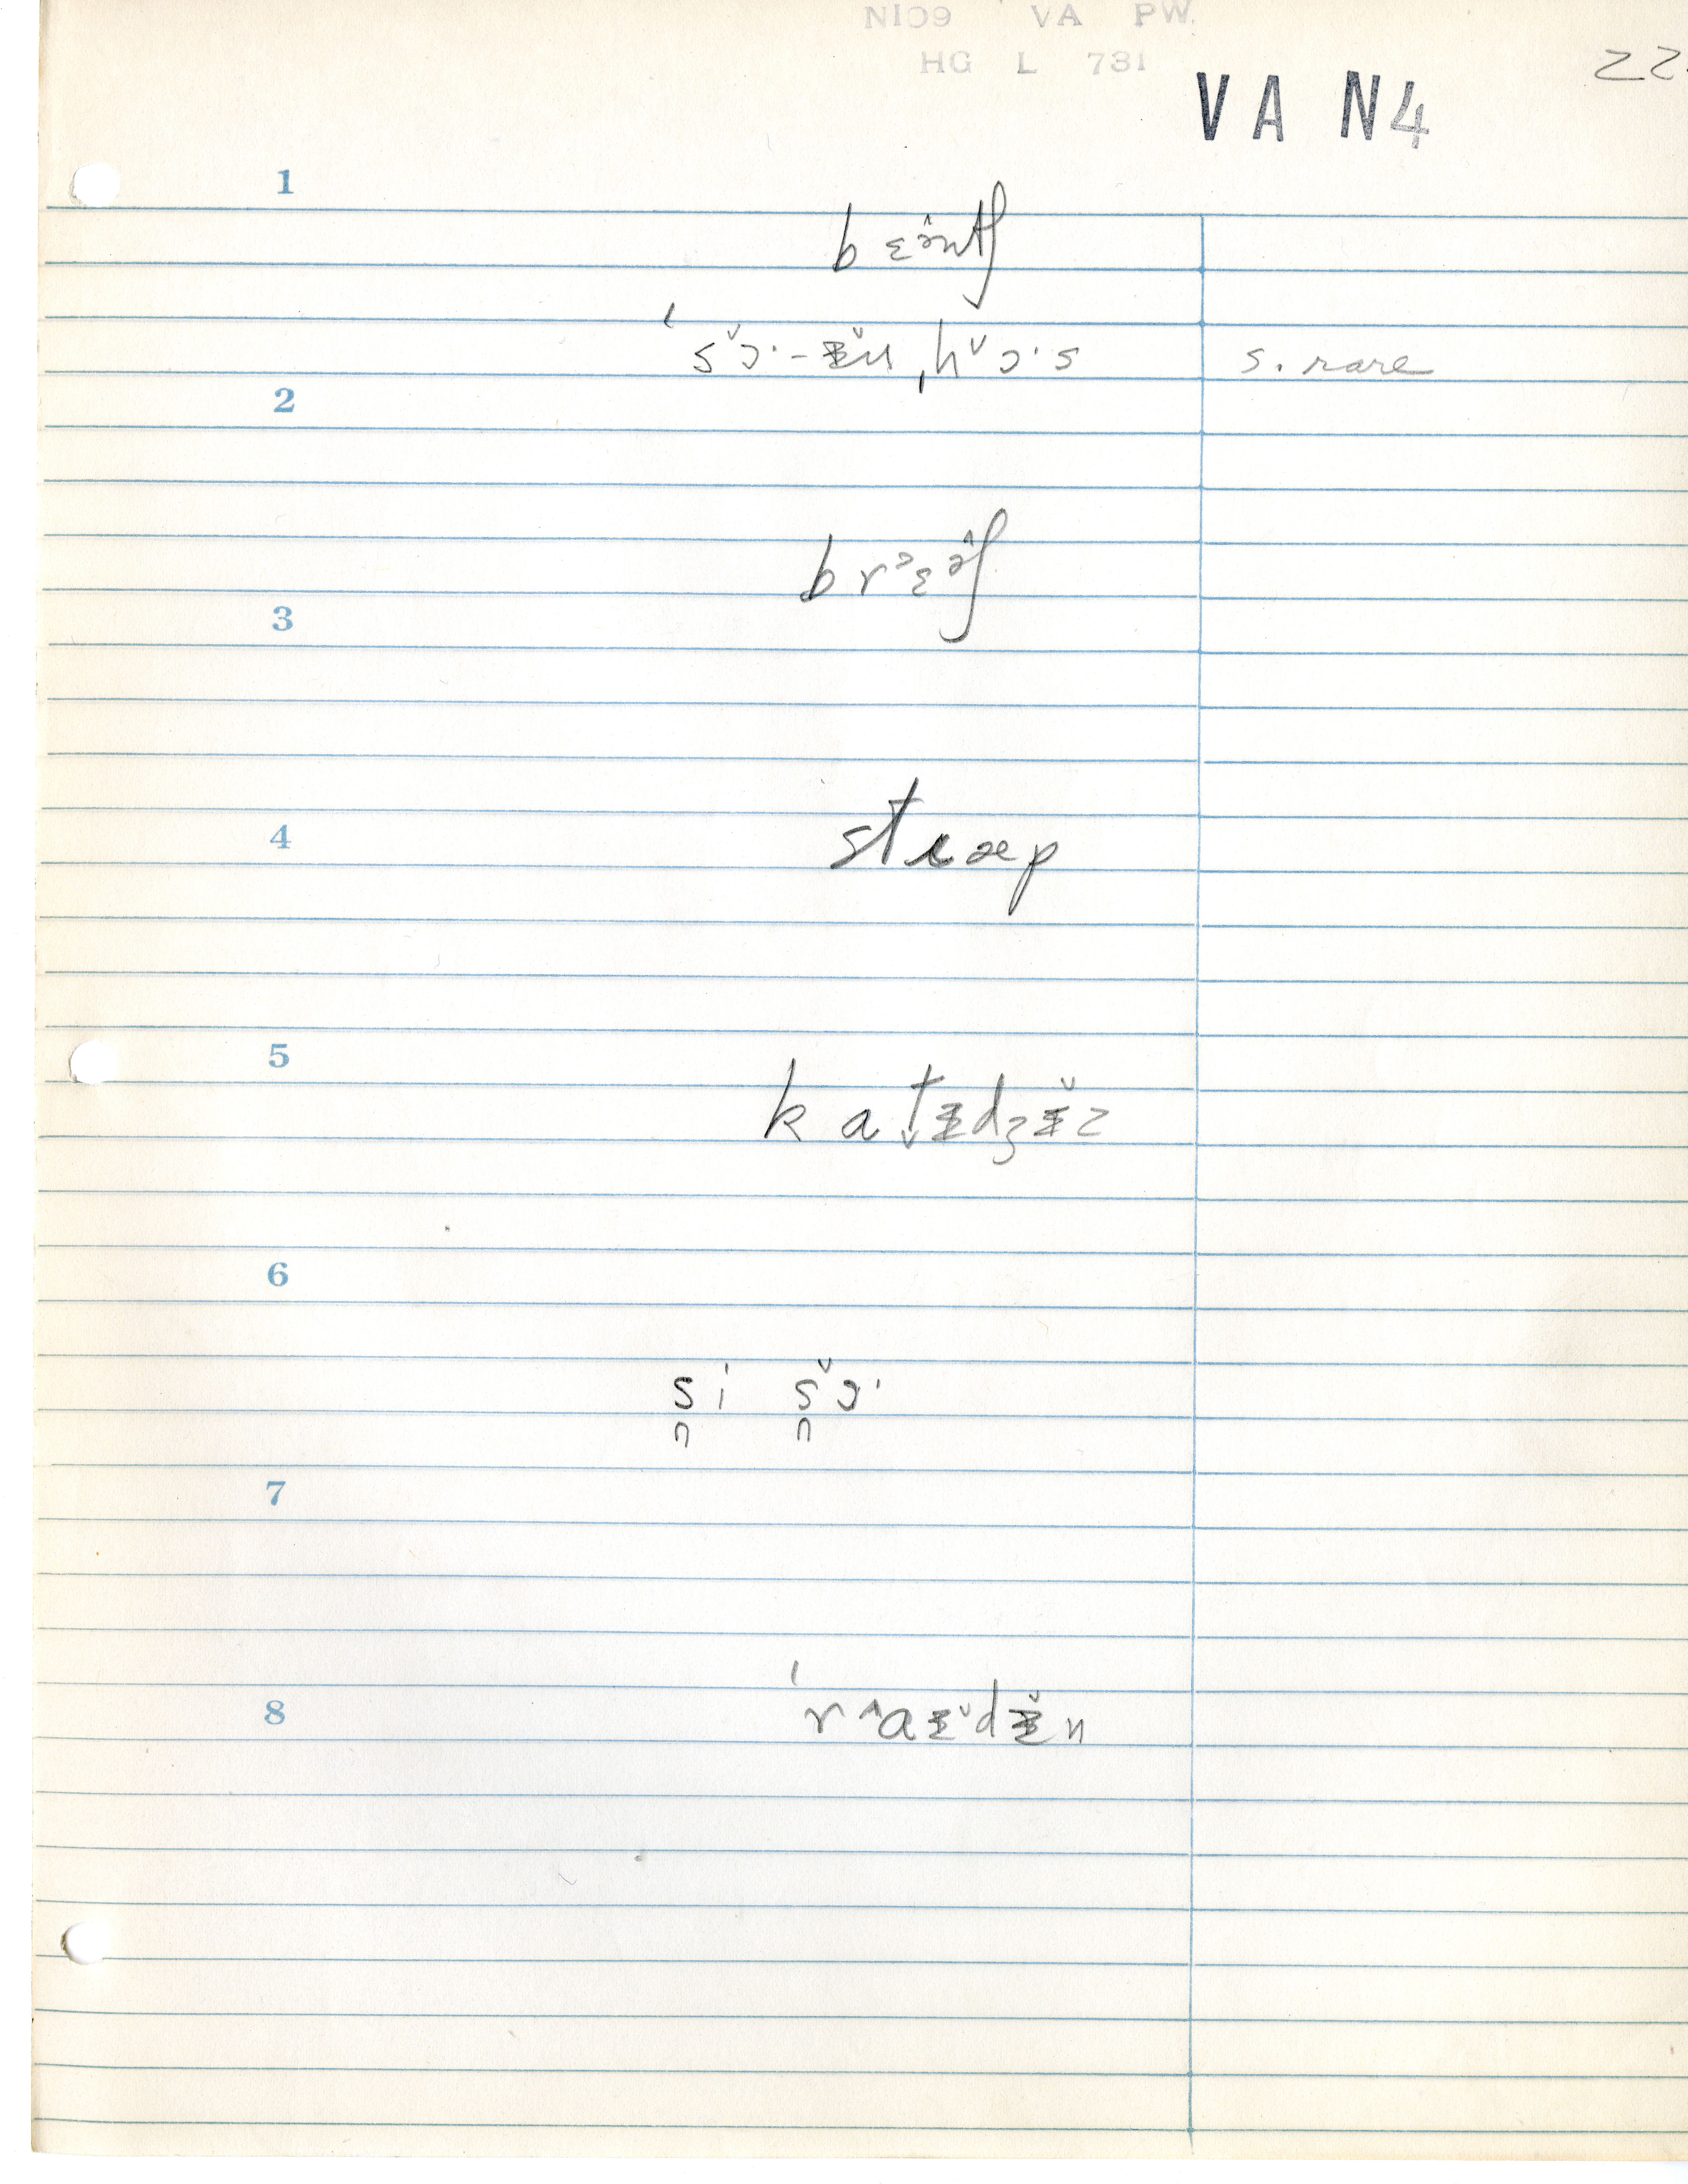 NIC9 VA PW.
HG L 731
22
V A N4
1
b ɛə̂ntʃ
ˈsɔ̌·-ɪ̵̌n ˌhɔ̌·s s. rare
2
br ɛə̂ʃ
3
4
stɛæp
5
k a t ɪ̵dʒɪ̵̌z
6
si sɔ̌·
7
ˈr^aɪ̵̌dɪ̵̌n
8